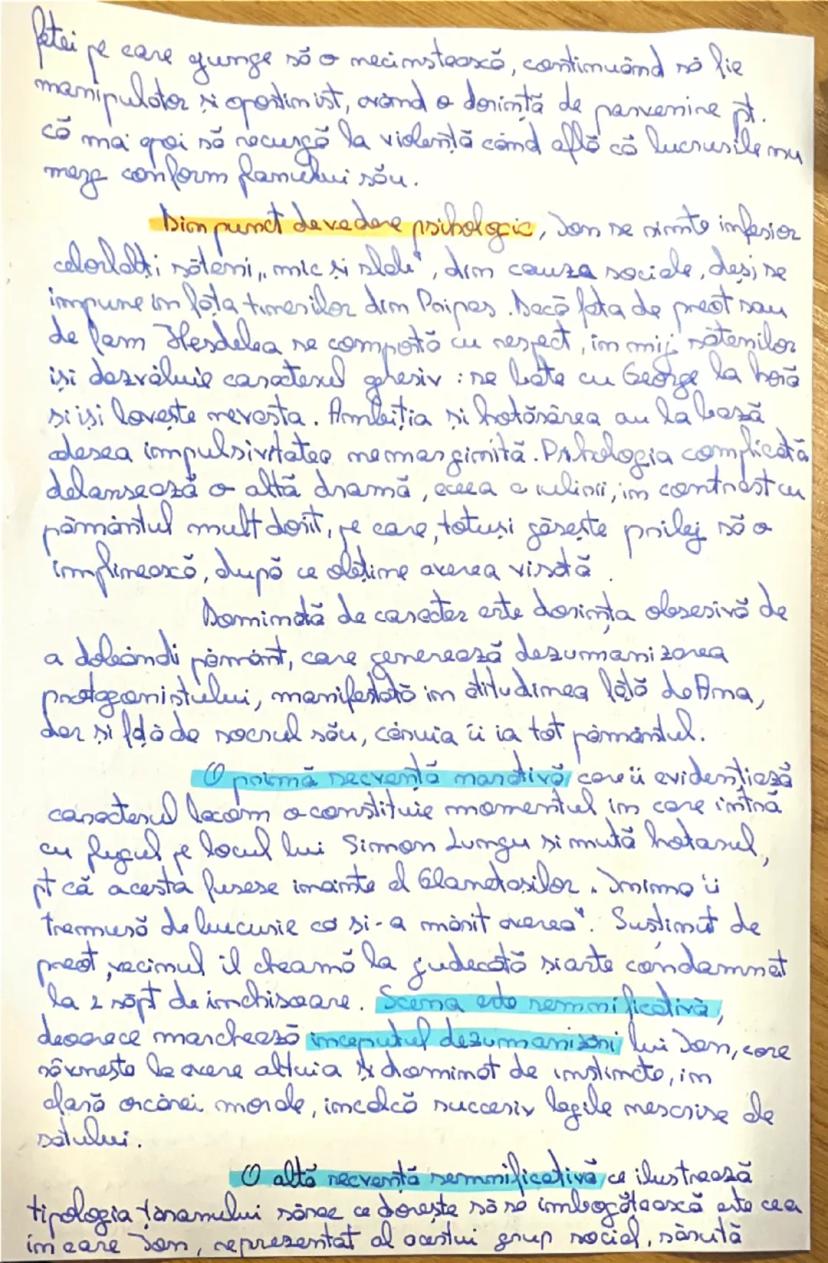 fetei pe care ajunge să o necinstească, continuând să fie
manipulator și oportunist, având o dorință de parvenire pt.
că mai apoi să recurgă la violență când află că lucrurile nu
merg conform planului său.
Din punct de vedere psihologic, Ion se simte inferior
celorlalți săteni „mic și slab", din cauza sociale, deși se
impune în fața tinerilor din Pripas. Dacă față de preot sau
de fam Herdelea se comportă cu respect, în mij sătenilor
își dezvăluie caracterul agresiv : se bate cu George la horă
și își lovește nevasta. Ambiția și hotărârea au la bază
adesea impulsivitatea nemarginită. Psihologia complicată
delansează o altă dramă, aceea a iubirii, în contrast cu
pământul mult dorit, pe care, totuși găsește prilej să o
împlinească, după ce obține averea visată.
Dominată de caracter este dorința obsesivă de
a dobândi pământ, care generează dezumanizarea
protagonistului, manifestată în atitudinea față de Ana,
dar și față de socrul său, căruia îi ia tot pământul.
O primă secvență narativă care îi evidențiază
caracterul lacom o constituie momentul în care intră
cu plugul pe locul lui Simion Lungu și mută hotarul,
pt că acesta fusese înainte al Glanetașilor. „Inima îi
tremura de bucurie că și-a mărit averea". Susținut de
preot, vecinul îl cheamă la judecată și este condamnat
la 2 săpt de închisoare. Scena este semnificativă,
deoarece marchează începutul dezumanizării lui Ion, care
râvnește la avere altuia și dominat de instincte, în
afară oricărei morale, încalcă succesiv legile nescrise ale
satului.
O altă secvență semnificativă ce ilustrează
tipologia țăranului sărac ce dorește să se îmbogățească este cea
în care Ion, reprezentat al acestui grup social, sărută